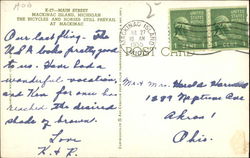 X-27—MAIN STREET
MACKINAC ISLAND, MICHIGAN
THE BICYCLES AND HORSES STILL PREVAIL
AT MACKINAC
MACKINAC ISLAND
JUL 27
10 AM
POST CARD
Our last fling. The
U.S.A. looks pretty good
to us. Have had a
wonderful vacation,
and Ken for once has
reached the desired
shade of brown.
Love
K. + P.
Mr + Mrs. Harold
1889 Neptune Ave
Akron 1
Ohio.